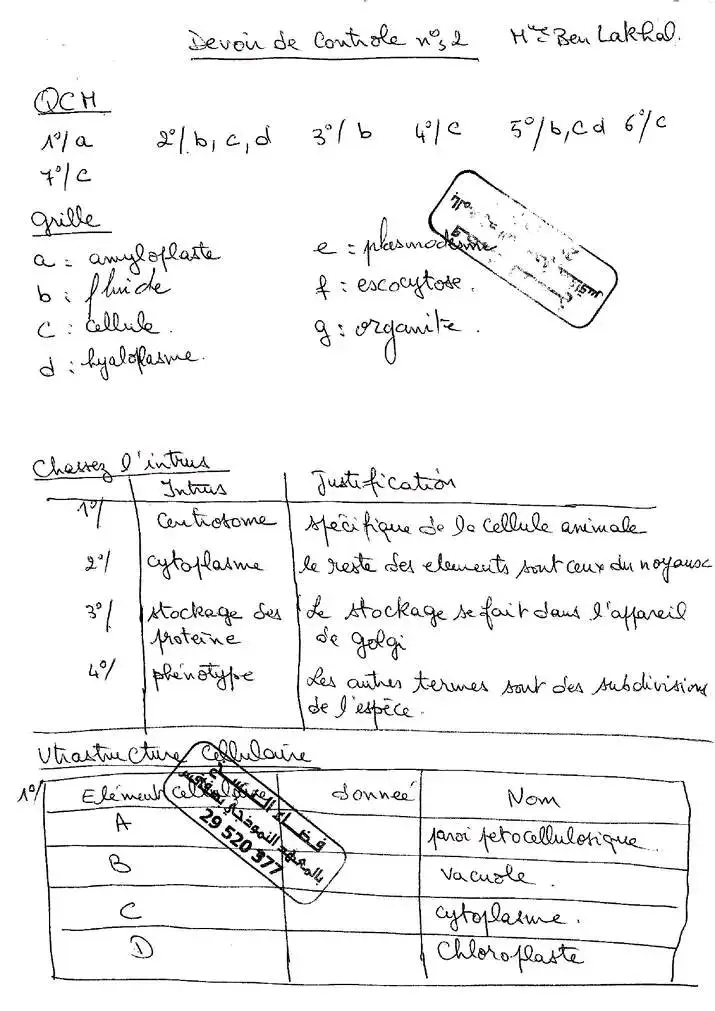 Devoir de Controle n°2 Mme Ben Lakhal.
QCM
1°/ a 2°/ b, c, d 3°/ b 4°/ c 5°/ b, c d 6°/ c
7°/ c
grille
a : amyloplaste e : plasmodesme
b : fluide f : escocytose.
c : cellule. g : organite.
d : hyaloplasme.
Chassez l'intrus
Intrus Justification
1°/ Centrosome spécifique de la cellule animale
2°/ cytoplasme le reste des elements sont ceux du noyau
3°/ stockage des Le stockage se fait dans l'appareil
proteine de golgi
4°/ phénotype Les autres termes sont des subdivisions
de l'espèce.
Utrastructure Cellulaire
1°/ Elément cellulaire donneé Nom
A paroi petocellulosique
B vacuole.
C cytoplasme.
D Chloroplaste
فضاء
بالمعهد النموذجي
29 520 377